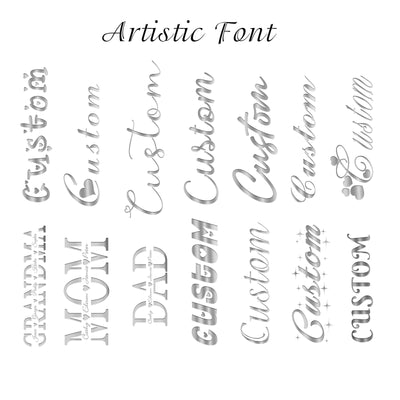 Artistic Font
Custom
Custom
Custom
Custom
Custom
Custom
Custom
GRANDMA
MOM
DAD
Custom
Custom
Custom
CUSTOM